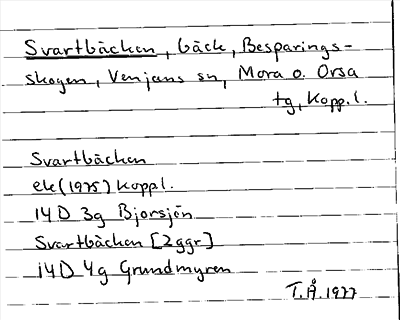 Svartbäcken, bäck, Besparings-
skogen, Venjans sn, Mora o. Orsa
tg, Kopp. l.
Svartbäcken
ek (1975) Koppl.
14D 3g Bjorsjön
Svartbäcken [2 ggr]
14D 4g Grundmyren
T.Å. 1977